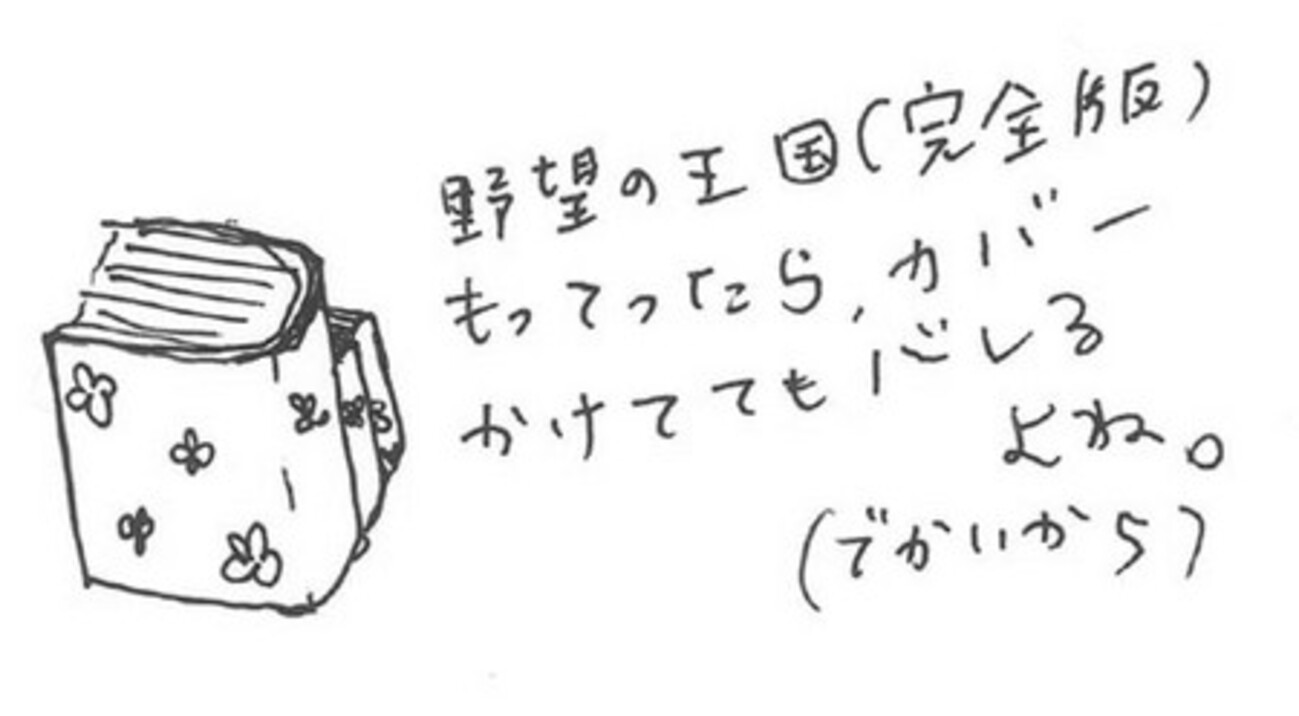 野望の王国(完全版)
もってったら、カバー
かけててもバレる
よね。
(でかいから)